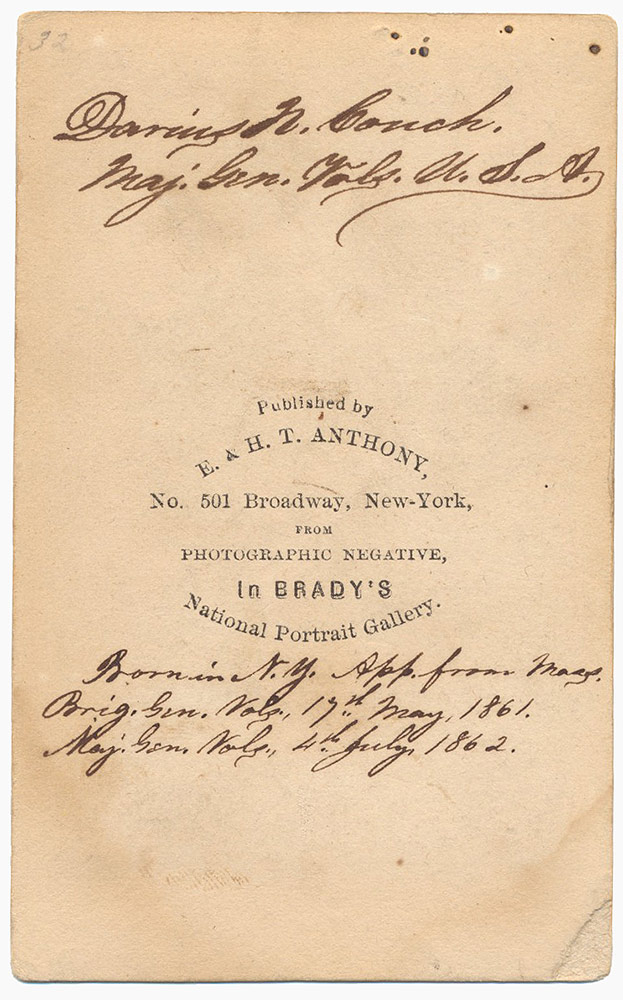 32
Darius N. Couch.
Maj. Gen. Vols. U. S. A.
Published by
E. & H. T. ANTHONY,
No. 501 Broadway, New-York,
FROM
PHOTOGRAPHIC NEGATIVE,
In BRADY'S
National Portrait Gallery.
Born in N.Y. App. from Mass.
Brig. Gen. Vols., 17th May, 1861.
Maj. Gen. Vols., 4th July, 1862.